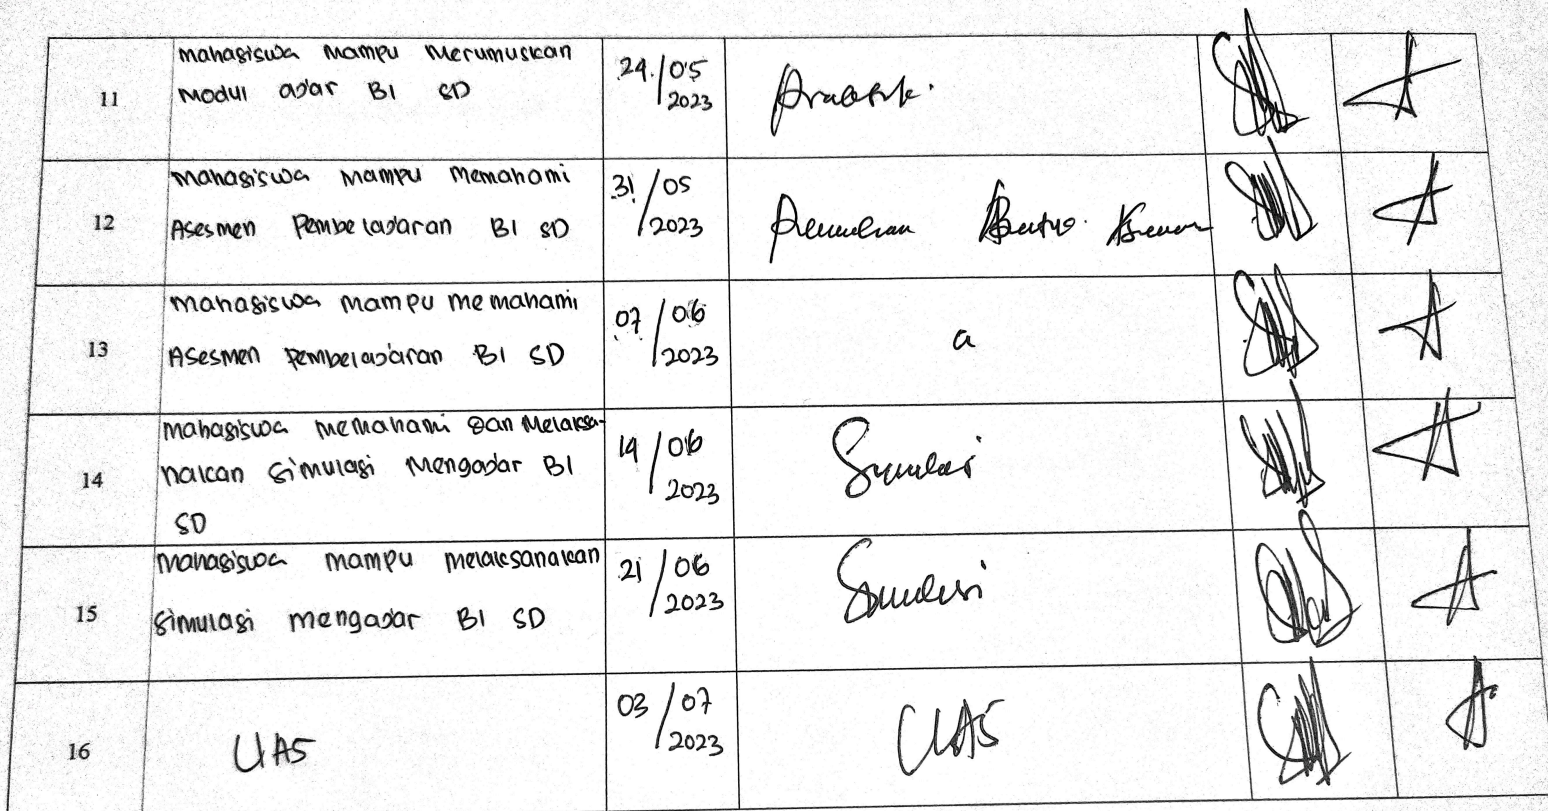 11
mahasiswa mampu merumuskan
modul ajar BI SD
24/05
2023
Praktek.
12
mahasiswa mampu memahami
Asesmen Pembelajaran BI SD
31/05
2023
13
mahasiswa mampu memahami
Asesmen pembelajaran BI SD
07/06
2023
a
14
mahasiswa memahami dan melaksa-
nakan simulasi mengajar BI
SD
14/06
2023
Simulasi
15
mahasiswa mampu melaksanakan
simulasi mengajar BI SD
21/06
2023
Simulasi
16
UAS
03/07
2023
UAS